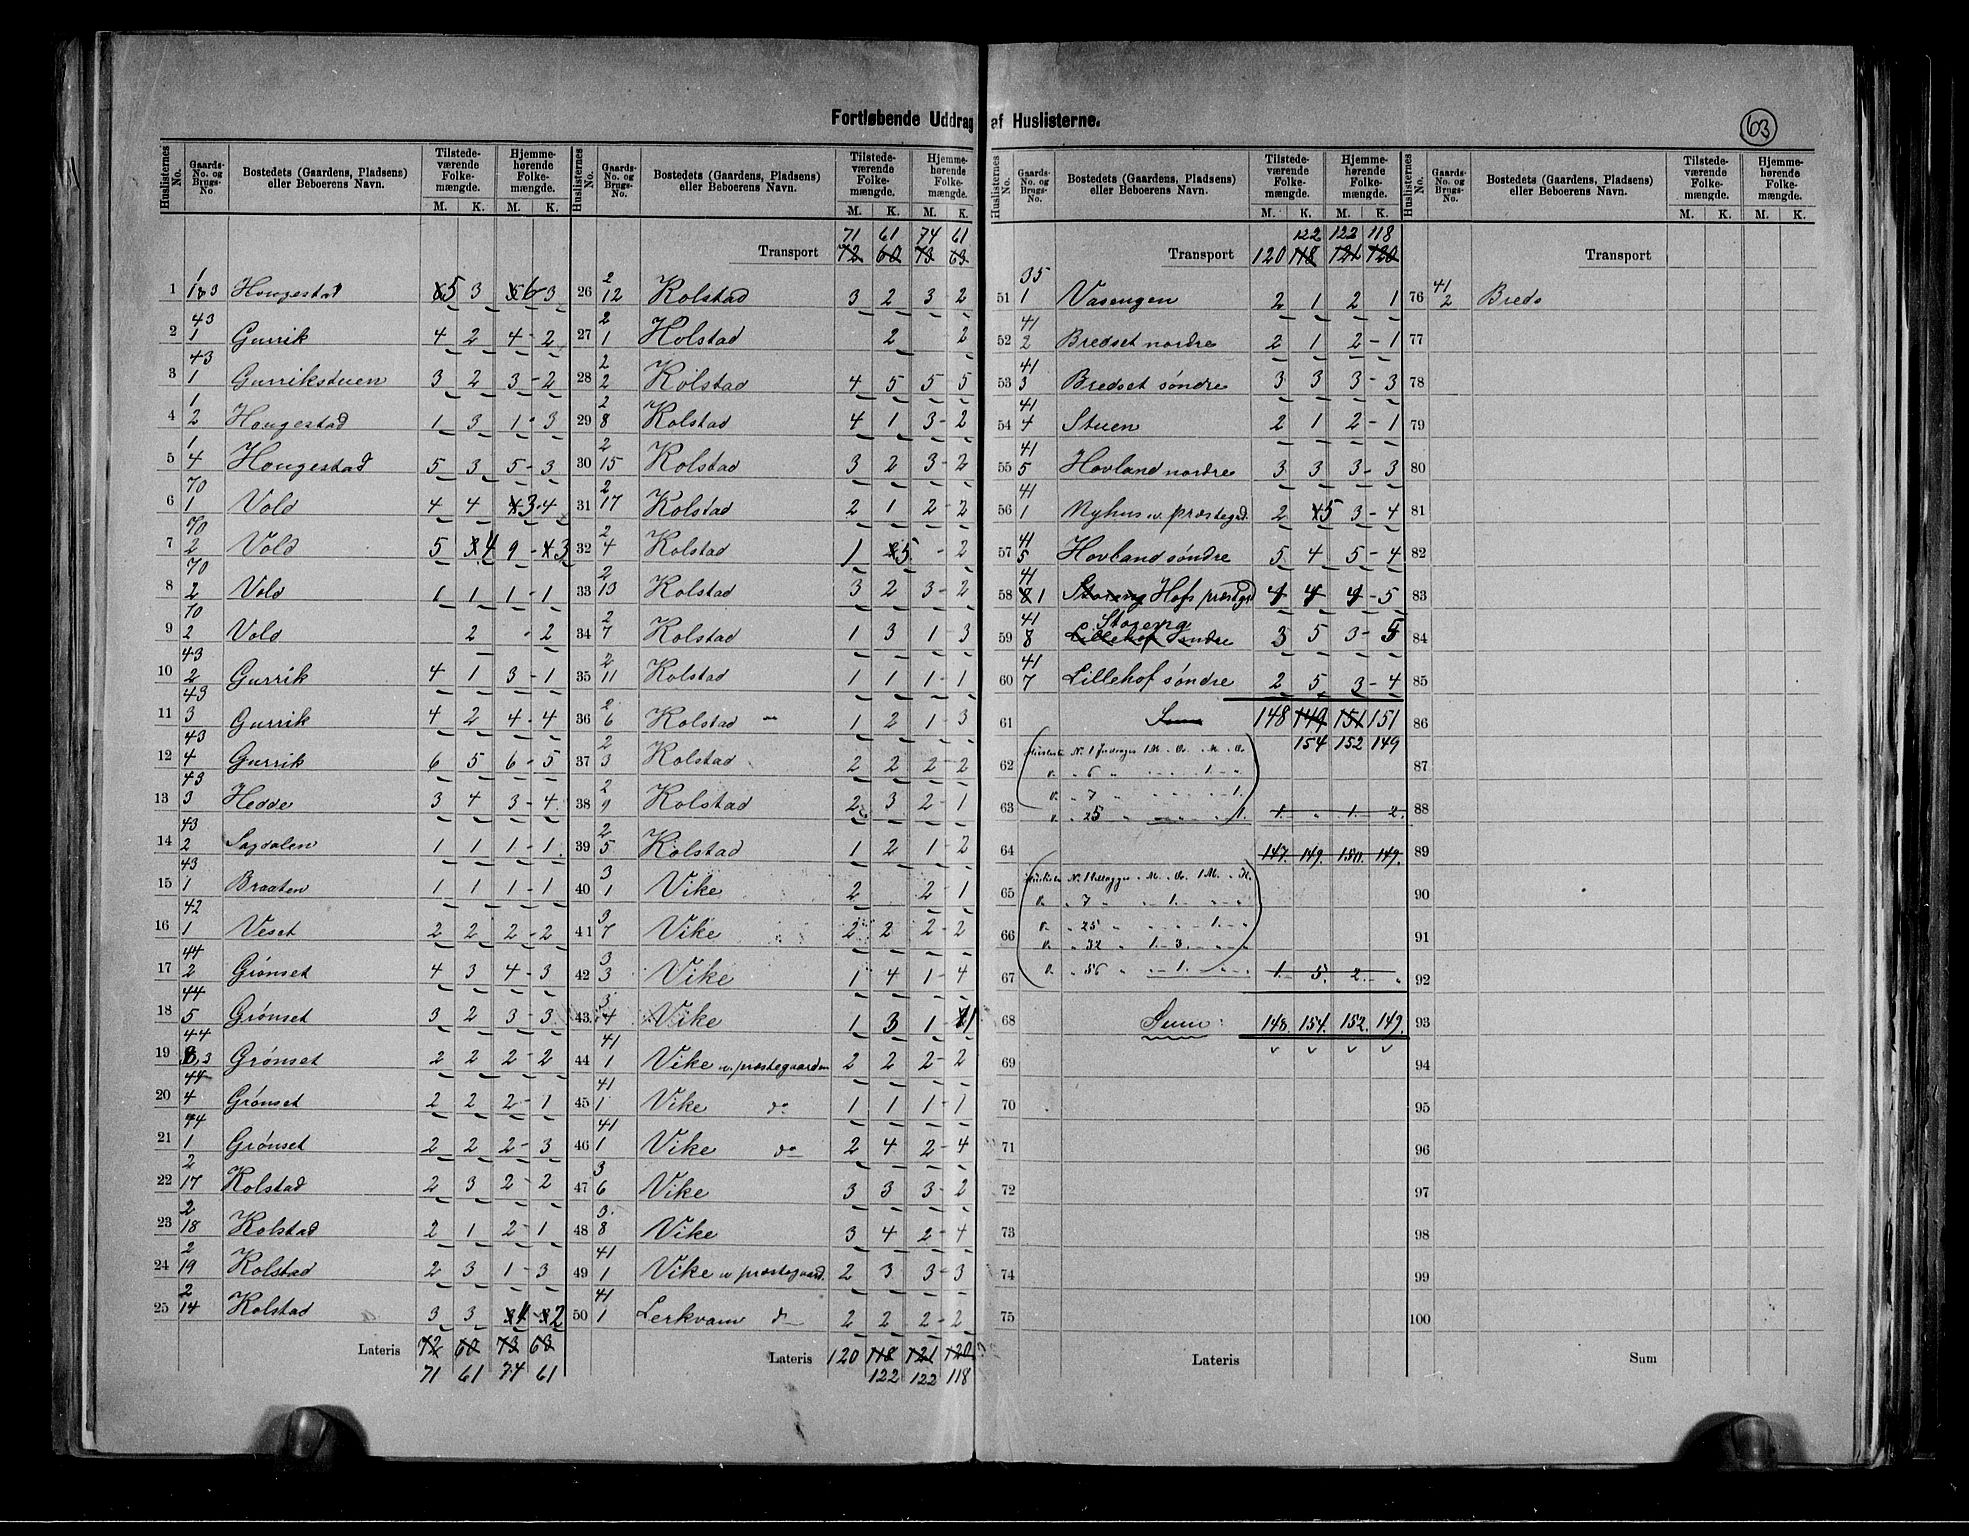 Fortløbende Uddrag af Huslisterne.
63
Huslisternes No. | Gaards-No. og Brugs-No. | Bostedets (Gaardens, Pladsens) eller Beboerens Navn. | Tilstedeværende Folkemængde. M. K. | Hjemmehørende Folkemængde. M. K.
1 Hougestad 5 3 6 - 3
2 43 1 Gurrik 4 2 4 - 2
3 43 1 Gurrikstuen 3 2 3 - 2
4 1 2 Hougestad 1 3 1 - 3
5 1 4 Hougestad 5 3 5 - 3
6 70 1 Vold 4 4 3 - 4
7 70 2 Vold 5 4 9 - 3
8 70 2 Vold 1 1 1 - 1
9 70 2 Vold 2 - 2
10 43 2 Gurrik 4 1 3 - 1
11 43 3 Gurrik 4 2 4 - 4
12 43 4 Gurrik 6 5 6 - 5
13 43 3 Hedde 3 4 3 - 4
14 43 2 Sagdalen 1 1 1 - 1
15 43 1 Braaten 1 1 1 - 1
16 42 1 Veset 2 2 2 - 2
17 44 2 Grønset 4 3 4 - 3
18 44 5 Grønset 3 2 3 - 3
19 44 3 Grønset 2 2 2 - 2
20 44 4 Grønset 2 2 2 - 1
21 44 1 Grønset 2 2 2 - 3
22 2 17 Kolstad 2 3 2 - 2
23 2 18 Kolstad 2 1 2 - 1
24 2 19 Kolstad 2 3 1 - 3
25 2 14 Kolstad 3 3 4 - 2
Lateris 72 60 73 63
71 61 74 61
71 61 74 61
Transport 72 60 73 63
26 2 12 Kolstad 3 2 3 - 2
27 2 1 Holstad 2 2
28 2 2 Kolstad 4 5 5 5
29 2 8 Kolstad 4 1 3 - 2
30 2 15 Kolstad 3 2 3 - 2
31 2 17 Kolstad 2 1 2 - 2
32 2 4 Kolstad 1 5 - 2
33 2 13 Kolstad 3 2 3 - 2
34 2 7 Kolstad 1 3 1 - 3
35 2 11 Kolstad 1 1 1 - 1
36 2 6 Kolstad 1 2 1 3
37 2 3 Kolstad 2 2 2 - 2
38 2 9 Kolstad 2 3 2 - 1
39 2 5 Kolstad 1 2 1 - 2
40 3 1 Vike 2 2 - 1
41 3 7 Vike 2 2 2 - 2
42 3 3 Vike 1 4 1 - 4
43 3 4 Vike 1 3 1 - 1
44 41 1 Vike u. præstegaarden 2 2 2 - 2
45 41 1 Vike do 1 1 1 - 1
46 41 1 Vike do 2 4 2 - 4
47 3 6 Vike 3 3 3 - 2
48 3 8 Vike 3 4 2 - 4
49 41 1 Vike u præstegaard. 2 3 3 - 3
50 41 1 Lerkvam do 2 2 2 - 2
Lateris 120 118 121 120
122 122 118
122 122 118
Transport 120 118 121 120
51 35 1 Vasengen 2 1 2 1
52 41 2 Bredset nordre 2 1 2 - 1
53 41 3 Bredset søndre 3 3 3 - 3
54 41 4 Stuen 2 1 2 - 1
55 41 5 Hovland nordre 3 3 3 - 3
56 41 1 Nyhus u. præstegd. 2 5 3 - 4
57 41 5 Hovland søndre 5 4 5 - 4
58 41 1 Storeng Hofs præstgd 4 4 4 - 5
59 41 8 Lillehof søndre Storeng 3 5 3 - 5
60 41 7 Lillehof søndre 2 5 3 - 4
61 Sum 148 149 151 151
154 152 149
62 Husliste No. 1 Indrages 1 M.
" 6 " 1.
" 7 " 1.
63 " 25 " 1. 1. " 1. 2.
64 147. 149. 150. 149.
65 Husliste No. 1 tillægges 1 M.
" 7 " 1.
66 " 25 " 1.
" 32 " 1. 3.
67 " 56 " 1. 1. 5. 2.
68 Sum: 148. 154. 152. 149.
69
70
71
72
73
74
75
Lateris
Transport
76 41 2 Breds
77
78
79
80
81
82
83
84
85
86
87
88
89
90
91
92
93
94
95
96
97
98
99
100
Sum